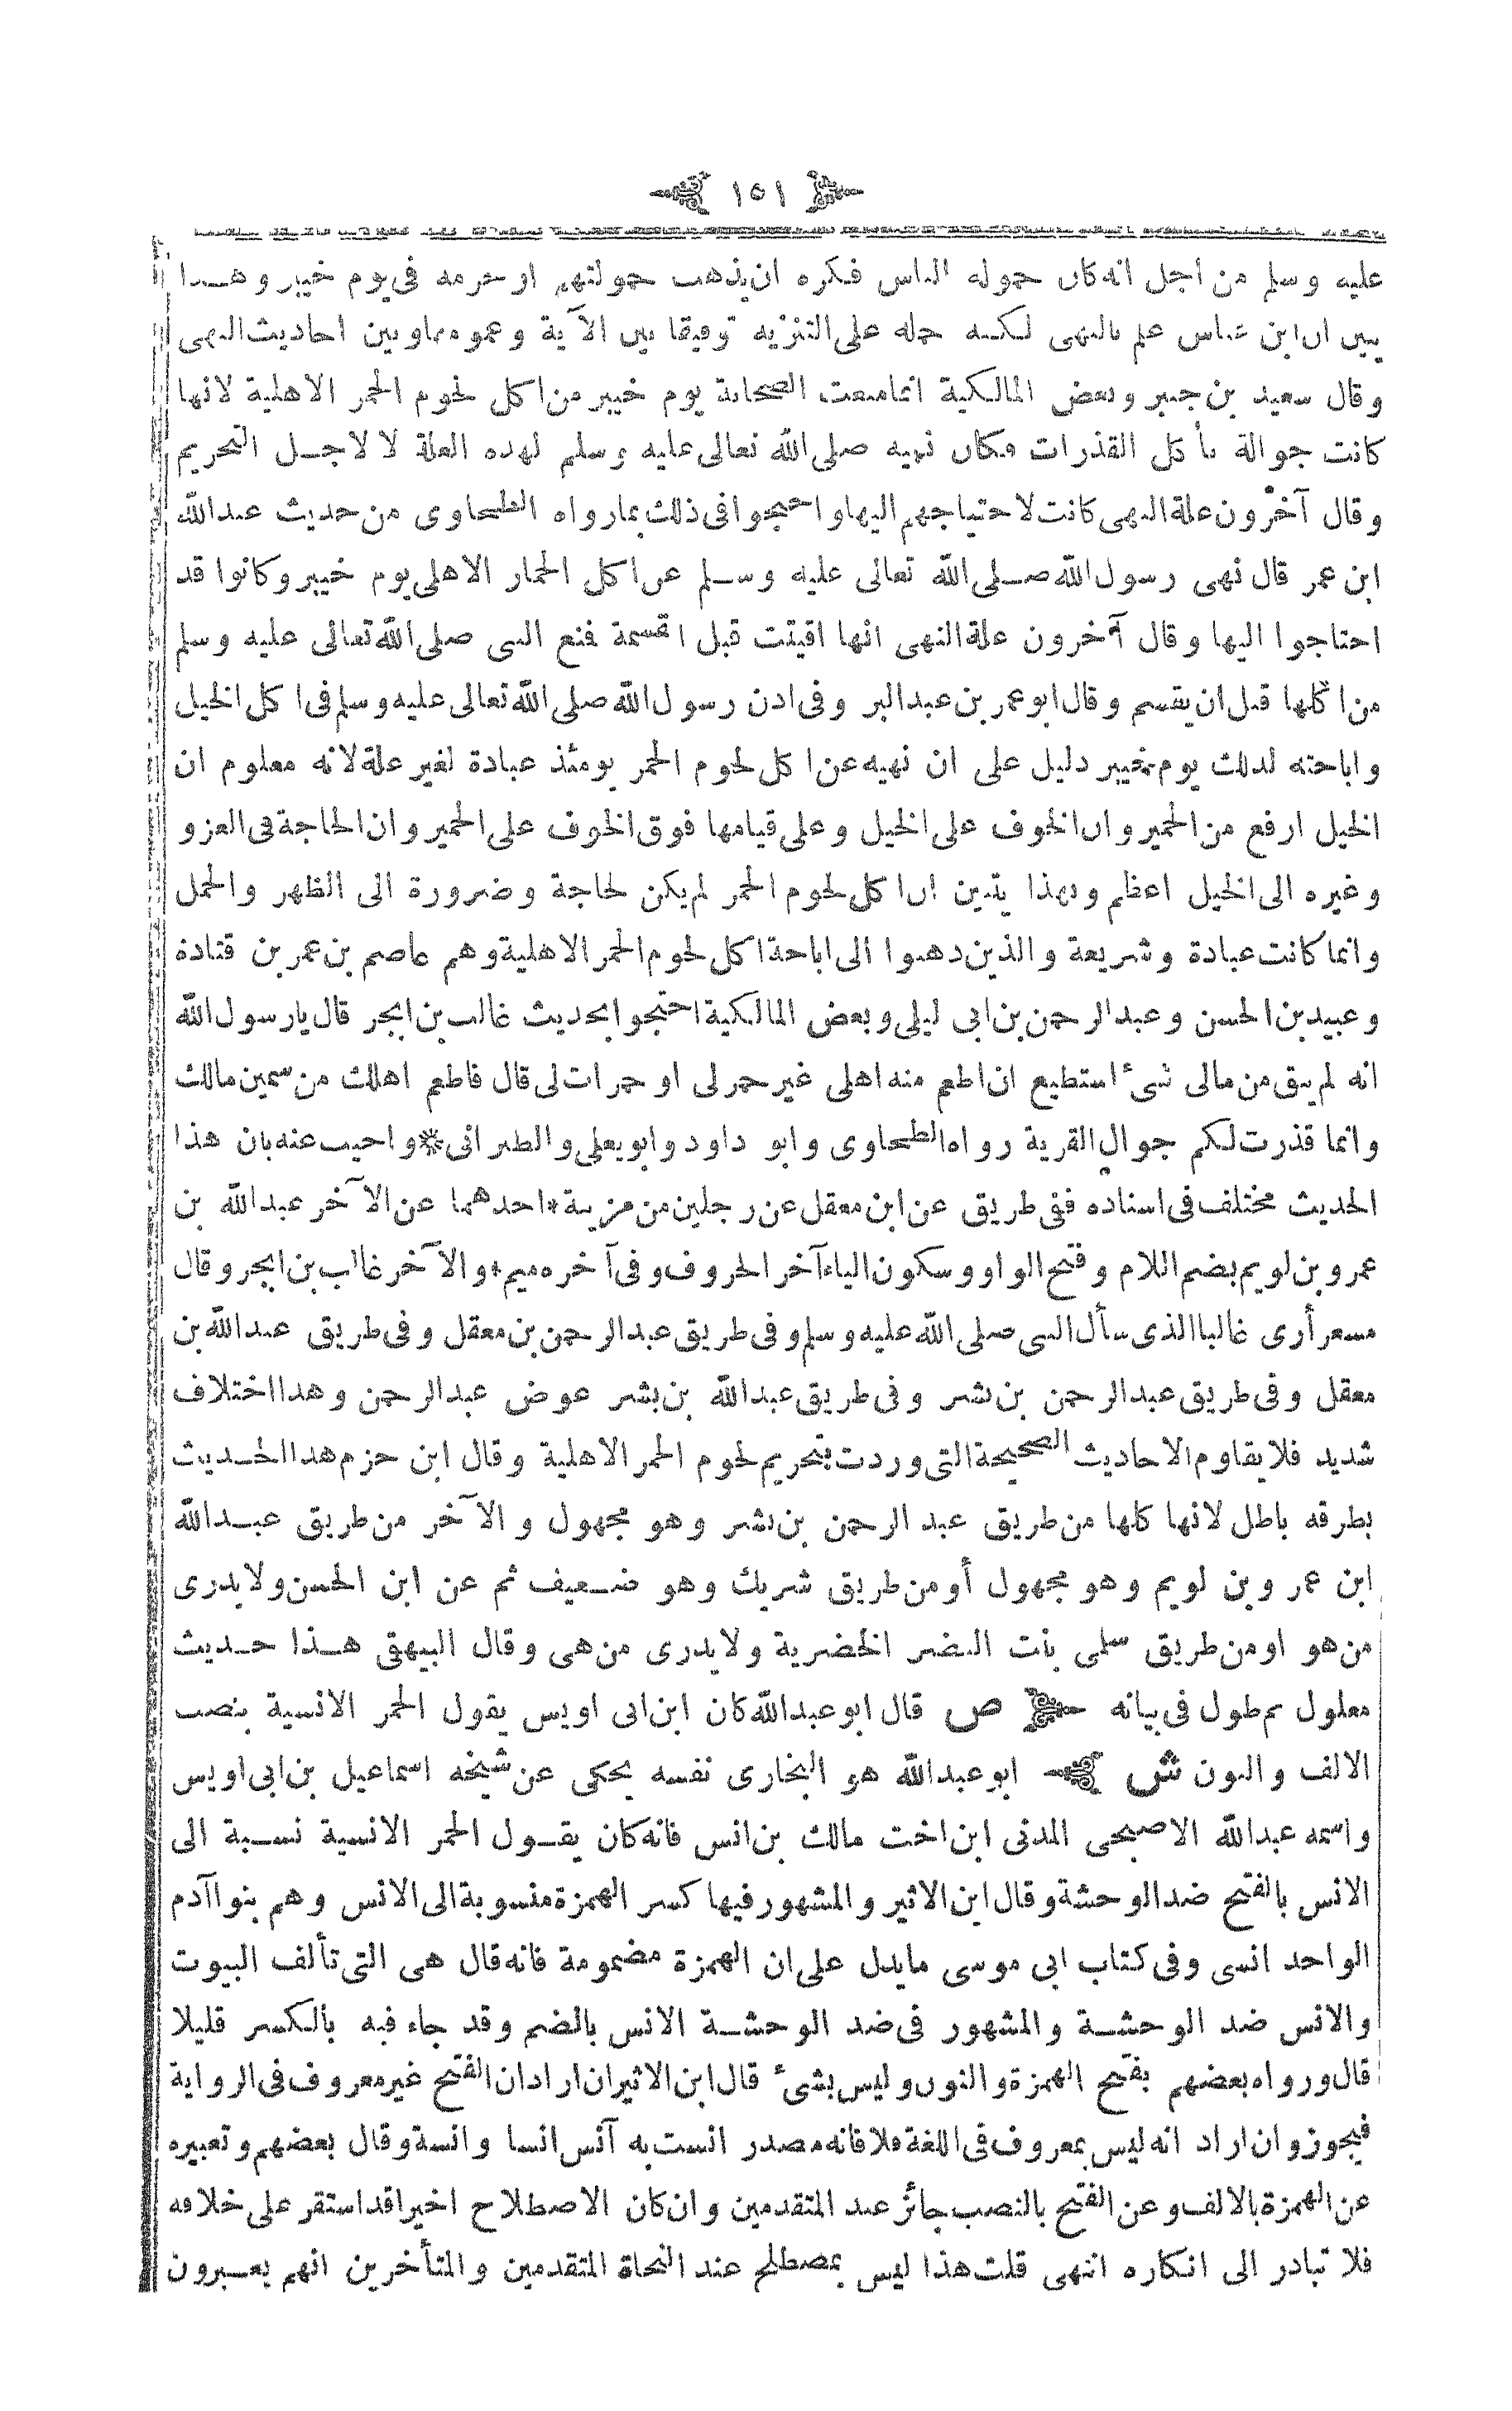 ١٥١
عليه وسلم من أجل انه كان حمولة الناس فكره ان يذهب حمولتهم او حرمه فى يوم خيبر وهـذا
يبين ان ابن عباس علم بالنهى لكنه حمله على التنزيه توفيقا بين الآية وعمومها وبين احاديث النهى
وقال سعيد بن جبير وبعض المالكية انما منعت الصحابة يوم خيبر من اكل لحوم الحمر الاهلية لانها
كانت جوالة تأكل القذرات فكان نهيه صلى الله تعالى عليه وسلم لهذه العلة لا لاجـل التحريم
وقال آخرون علة النهى كانت لاحتياجهم اليها واحتجوا فى ذلك بما رواه الطحاوى من حديث عبدالله
ابن عمر قال نهى رسول الله صـلى الله تعالى عليه وسـلم عن اكل الحمار الاهلى يوم خيبر وكانوا قد
احتاجوا اليها وقال آخرون علة النهى انها افيتت قبل القسمة فمنع النبى صلى الله تعالى عليه وسلم
من اكلها قبل ان يقسم وقال ابو عمر بن عبد البر وفى اذن رسول الله صلى الله تعالى عليه وسلم فى اكل الخيل
واباحته لذلك يوم خيبر دليل على ان نهيه عن اكل لحوم الحمر يومئذ عبادة لغير علة لانه معلوم ان
الخيل ارفع من الحمير وان الخوف على الخيل وعلى قيامها فوق الخوف على الحمير وان الحاجة فى الغزو
وغيره الى الخيل اعظم وبهذا يتبين ان اكل لحوم الحمر لم يكن لحاجة وضرورة الى الظهر والحمل
وانما كانت عبادة وشريعة والذين ذهبوا الى اباحة اكل لحوم الحمر الاهلية وهم عاصم بن عمر بن قتادة
وعبيد بن الحسن وعبد الرحمن بن ابى ليلى وبعض المالكية احتجوا بحديث غالب بن ابجر قال يا رسول الله
انه لم يبق من مالى شىء استطيع ان اطعم منه اهلى غير حمر لى او حمرات لى قال فاطعم اهلك من سمين مالك
وانما قذرت لكم جوال القرية رواه الطحاوى وابو داود وابو يعلى والطبرانى * واجيب عنه بان هذا
الحديث مختلف فى اسناده ففى طريق عن ابن معقل عن رجلين من مزينة * احدهما عن الآخر عبد الله بن
عمرو بن لويم بضم اللام وفتح الواو وسكون الياء آخر الحروف وفى آخره ميم * والآخر غالب بن ابجر وقال
مسعر أرى غالبا الذى سأل النبى صلى الله عليه وسلم وفى طريق عبد الرحمن بن معقل وفى طريق عبد الله بن
معقل وفى طريق عبد الرحمن بن بشر وفى طريق عبد الله بن بشر عوض عبد الرحمن وهذا اختلاف
شديد فلا يقاوم الاحاديث الصحيحة التى وردت بتحريم لحوم الحمر الاهلية وقال ابن حزم هذا الحـديث
بطرقه باطل لانها كلها من طريق عبد الرحمن بن بشر وهو مجهول والآخر من طريق عبـد الله
ابن عمر وبن لويم وهو مجهول أو من طريق شريك وهو ضـعيف ثم عن ابن الحسن ولا يدرى
من هو او من طريق سلمى بنت النضر الخضرية ولا يدرى من هى وقال البيهقى هـذا حـديث
معلول ثم طول فى بيانه ص قال ابو عبد الله كان ابن ابى اويس يقول الحمر الانسية بنصب
الالف والنون ش ابو عبد الله هو البخارى نفسه يحكى عن شيخه اسماعيل بن ابى اويس
واسمه عبد الله الاصبحى المدنى ابن اخت مالك بن انس فانه كان يقـول الحمر الانسية نسـبة الى
الانس بالفتح ضد الوحشة وقال ابن الاثير والمشهور فيها كسر الهمزة منسوبة الى الانس وهم بنوا آدم
الواحد انسى وفى كتاب ابى موسى ما يدل على ان الهمزة مضمومة فانه قال هى التى تألف البيوت
والانس ضد الوحشـة والمشهور فى ضد الوحشـة الانس بالضم وقد جاء فيه بالكسر قليلا
قال ورواه بعضهم بفتح الهمزة والنون وليس بشىء قال ابن الاثير ان اراد ان الفتح غير معروف فى الرواية
فيجوز وان اراد انه ليس بمعروف فى اللغة فلا فانه مصدر انست به آنس انسا وانسة وقال بعضهم وتعبيره
عن الهمزة بالالف وعن الفتح بالنصب جائز عند المتقدمين وان كان الاصطلاح اخيرا قد استقر على خلافه
فلا تبادر الى انكاره انتهى قلت هذا ليس بمصطلح عند النحاة المتقدمين والمتأخرين انهم يعـبرون